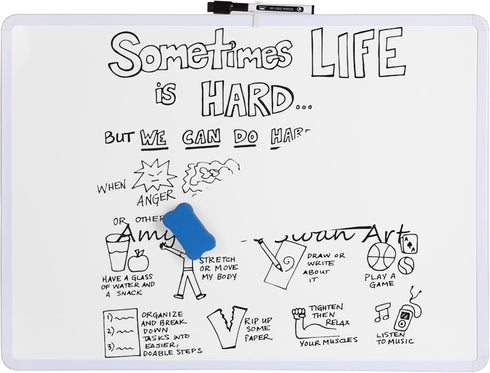 Sometimes LIFE
is HARD...
BUT WE CAN DO HAR
WHEN
ANGER
OR OTHE
Amy Swan Art
HAVE A GLASS
OF WATER AND
A SNACK
STRETCH
OR MOVE
MY BODY
DRAW OR
WRITE
ABOUT
IT
PLAY A
GAME
A
1)
2)
3)
ORGANIZE
AND BREAK
DOWN
TASKS INTO
EASIER,
DOABLE STEPS
RIP UP
SOME
PAPER
TIGHTEN
THEN
RELAX
YOUR MUSCLES
LISTEN
TO MUSIC